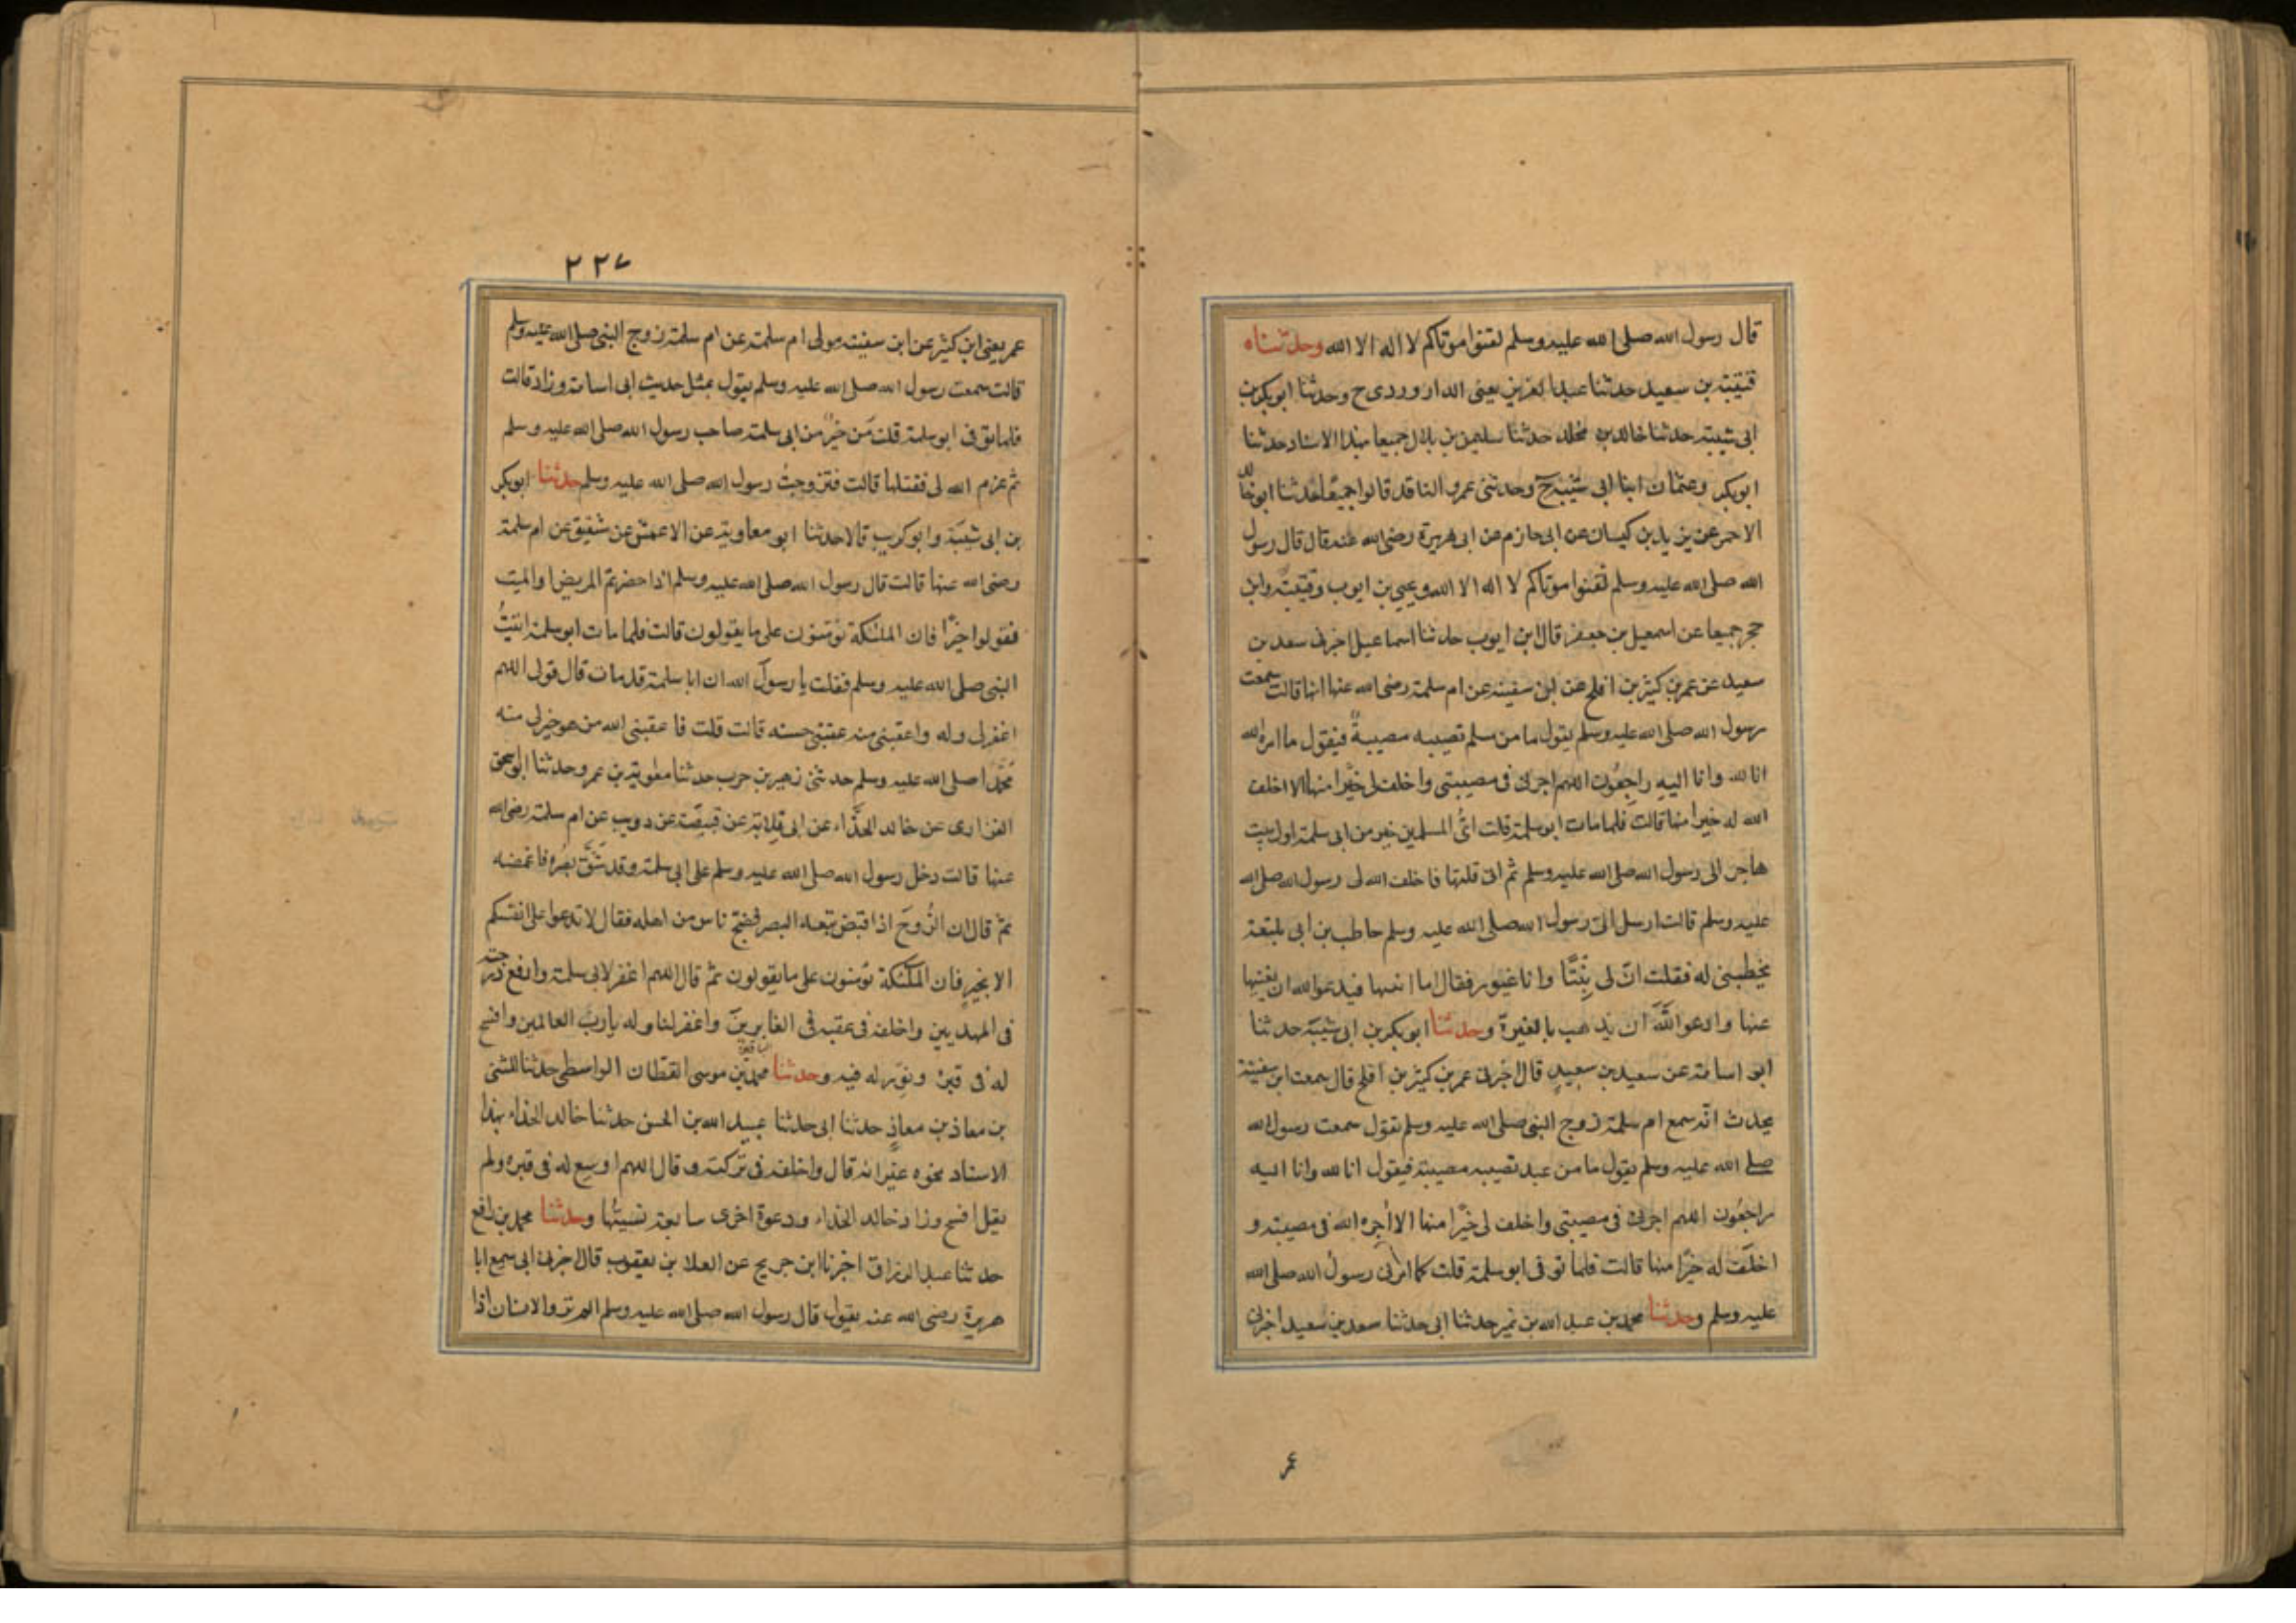 قال رسول الله صلى الله عليه وسلم لقنوا موتاكم لا اله الا الله وحدثناه
قتيبة بن سعيد حدثنا عبد العزيز يعنى الداروردى ح وحدثنا ابو بكر بن
ابى شيبة حدثنا خالد بن مخلد حدثنا سليمن بن بلال جميعا بهذا الاسناد حدثنا
ابوبكر وعثمان ابنا ابى شيبة ح وحدثنى عمرو الناقد قالوا جميعا حدثنا ابو خالد
الاحمر عن يزيد بن كيسان عن ابى حازم عن ابى هريرة رضى الله عنه قال قال رسول
الله صلى الله عليه وسلم لقنوا موتاكم لا اله الا الله ويحيى بن ايوب وقتيبة وابن
حجر جميعا عن اسمعيل بن جعفر قال ابن ايوب حدثنا اسماعيل اخبرنى سعد بن
سعيد عن عمر بن كثير بن افلح عن ابن سفينة عن ام سلمة رضى الله عنها انها قالت سمعت
رسول الله صلى الله عليه وسلم يقول ما من مسلم تصيبه مصيبةً فيقول ما امره الله
انا لله وانا اليه راجعون اللهم اجرنى فى مصيبتى واخلف لى خيرًا منها الا اخلف
الله له خيرا منها قالت فلما مات ابو سلمة قلت اىُّ المسلمين خير من ابى سلمة اول بيت
هاجر الى رسول الله صلى الله عليه وسلم ثم انى قلتها فاخلف الله لى رسول الله صلى الله
عليه وسلم قالت ارسل الىّ رسول الله صلى الله عليه وسلم حاطب بن ابى بلتعة
يخطبنى له فقلت انّ لى بِنْتًا وانا غيور فقال اما ابنتها فيدعوا الله ان يغنيها
عنها وادعو اللهَ ان يذهب بالغيرة وحدثنا ابوبكر بن ابى شيبة حدثنا
ابو اسامة عن سعيد بن سعيدٍ قال اخبرنى عمر بن كثير بن افلح قال سمعت ابن سفينة
يحدث انّه سمع ام سلمة زوج النبى صلى الله عليه وسلم تقول سمعت رسول الله
صلى الله عليه وسلم يقول ما من عبد تصيبه مصيبة فيقول انا لله وانا اليه
راجعُون اللهم اجرنى فى مصيبتى واخلف لى خيرًا منها الا اُجره الله فى مصيبته و
اخلَف له خيرًا منها قالت فلما توفى ابو سلمة قلت كما امرنى رسولُ الله صلى الله
عليه وسلم وحدثنا محمد بن عبد الله بن نمير حدثنا ابى حدثنا سعد بن سعيد اخبرنى
عمر
٢٢٧
عمر يعنى ابن كثير عن ابن سفينة مولى ام سلمة عن ام سلمة زوج النبى صلى الله عليه وسلم
قالت سمعت رسول الله صلى الله عليه وسلم يقول بمثل حديث ابى اسامة وزاد قالت
فلما توفى ابو سلمة قلت مَن خيرٌ من ابى سلمة صاحب رسول الله صلى الله عليه وسلم
ثم عزم الله لى فقلتها قالت فتزوجتُ رسول الله صلى الله عليه وسلم حدثنا ابوبكر
بن ابى شيبَة وابو كريب قالا حدثنا ابو معاوية عن الاعمش عن شقيق عن ام سلمة
رضى الله عنها قالت قال رسول الله صلى الله عليه وسلم اذا حضرتم المريض او الميت
فقولوا خيرًا فان الملئكة يؤمنون على ما يقولون قالت فلما مات ابو سلمة اتيتُ
النبى صلى الله عليه وسلم فقلت يا رسولَ الله ان ابا سلمة قد مات قال قولى اللهم
اغفر لى وله واعقبنى منه عقبى حسنه قالت قلت فاعقبنى الله من هو خير لى منه
مُحَمَّدًا صلى الله عليه وسلم حدثنى زهير بن حرب حدثنا معوية بن عمرو حدثنا ابو اسحق
الفزارى عن خالد الحذّاء عن ابى قلابة عن قبيصة عن دويب عن ام سلمة رضى الله
عنها قالت دخل رسول الله صلى الله عليه وسلم على ابى سلمة وقد شَقَّ بصره فاغمضه
ثمّ قال ان الرُّوحَ اذا قبض تبعه البصر فضج ناس من اهله فقال لا تدعوا على انفسكم
الا بخيرٍ فان الملئكة يؤمنون على ما يقولون ثم قال اللهم اغفر لابى سلمة وارفع درجته
فى المهديين واخلفه فى عقبه فى الغابرينَ واغفر لنا وله يا ربَّ العالمين وافسح
له فى قبره ونوّر له فيه وحدثنا محمد بن موسى القطان الواسطى حدثنا المثنى
بن معاذ بن معاذٍ حدثنا ابى حدثنا عبيد الله بن الحسن حدثنا خالد الحذاء بهذا
الاسناد نحوه غير انه قال واخلفه فى تركته وقال اللهم اوسع له فى قبره ولم
يقل افسح وزاد خالد الحذاء ودعوة اخرى سابعة نسيتُها وحدثنا محمد بن رافع
حدثنا عبد الرزاق اخبرنا ابن جريج عن العلا بن يعقوب قال اخبرنى ابى سمع ابا
هريرة رضى الله عنه يقول قال رسول الله صلى الله عليه وسلم الم تروا الانسان اذا